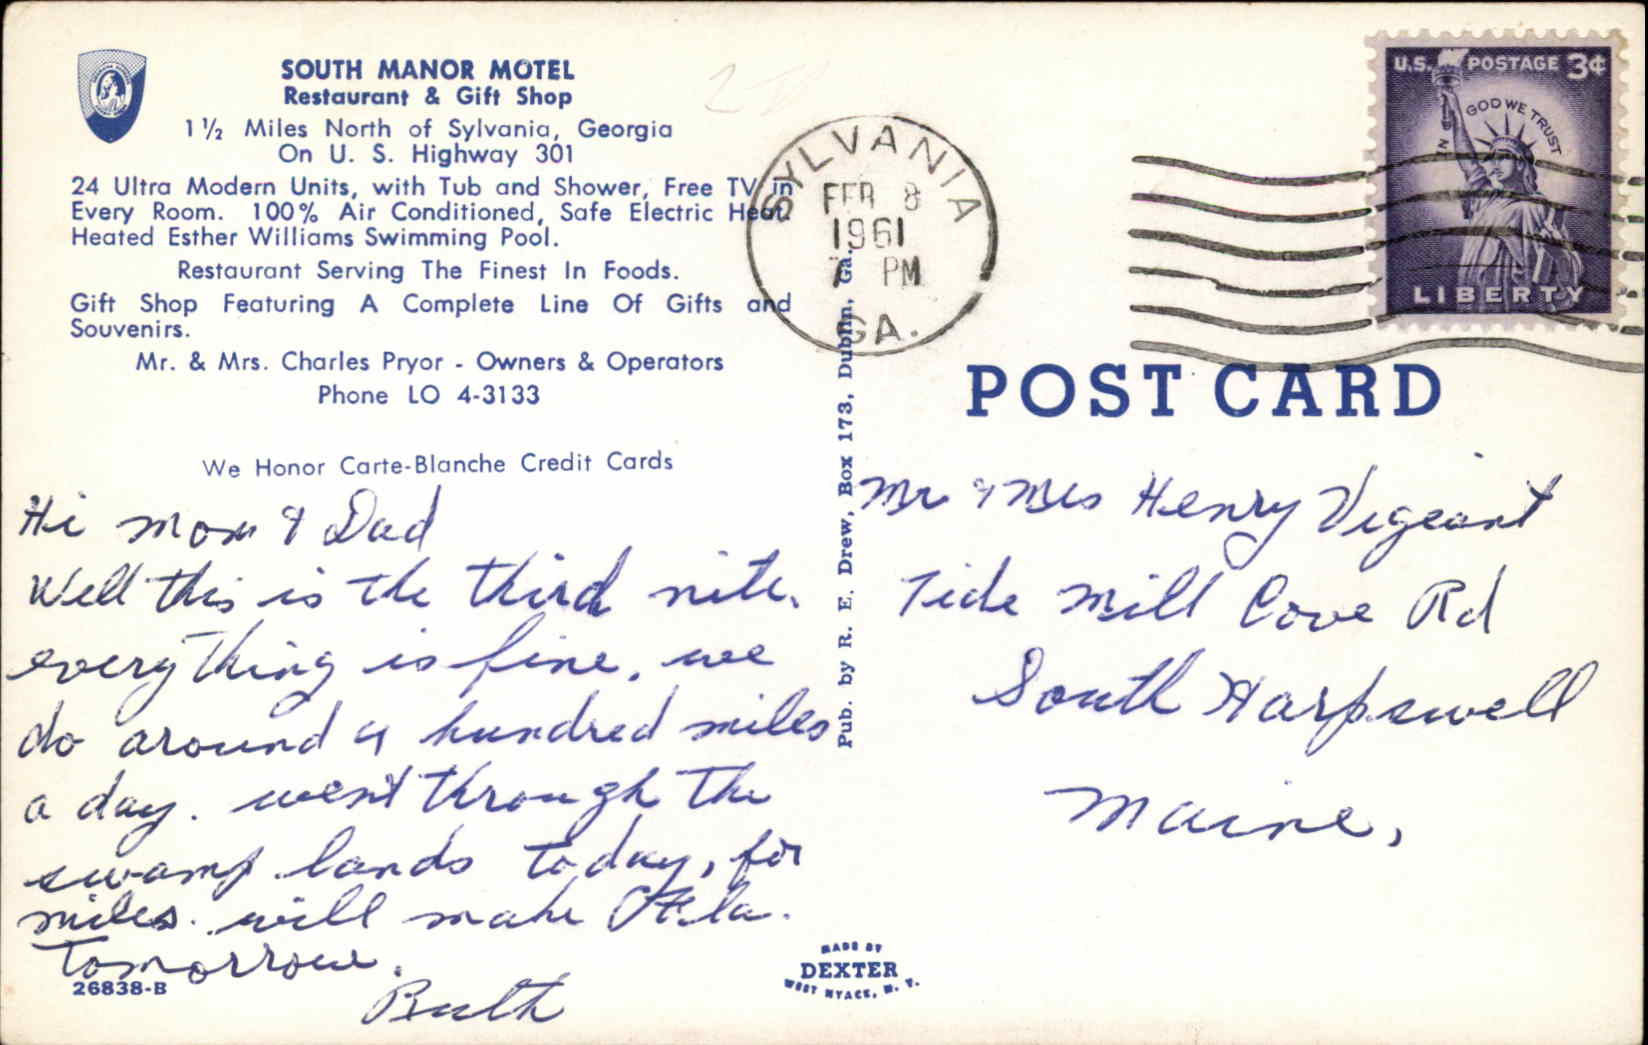 SOUTH MANOR MOTEL
Restaurant & Gift Shop
1 ½ Miles North of Sylvania, Georgia
On U. S. Highway 301
24 Ultra Modern Units, with Tub and Shower, Free TV in
Every Room. 100% Air Conditioned, Safe Electric Heat.
Heated Esther Williams Swimming Pool.
Restaurant Serving The Finest In Foods.
Gift Shop Featuring A Complete Line Of Gifts and
Souvenirs.
Mr. & Mrs. Charles Pryor - Owners & Operators
Phone LO 4-3133
We Honor Carte-Blanche Credit Cards
Hi Mom & Dad
Well this is the third nite.
everything is fine. we
do around 4 hundred miles
a day. went through the
swamp lands today, for
miles. will make Fla.
Tomorrow.
26838-B
Pub. by R. E. Drew, Box 173, Dublin, Ga.
MADE BY
DEXTER
WEST NYACK, N. Y.
SYLVANIA
FEB 8
1961
7 PM
GA.
U.S. POSTAGE 3¢
IN GOD WE TRUST
LIBERTY
POST CARD
Mr & Mrs Henry Vigeant
Tide Mill Cove Rd
South Harpswell
Maine,